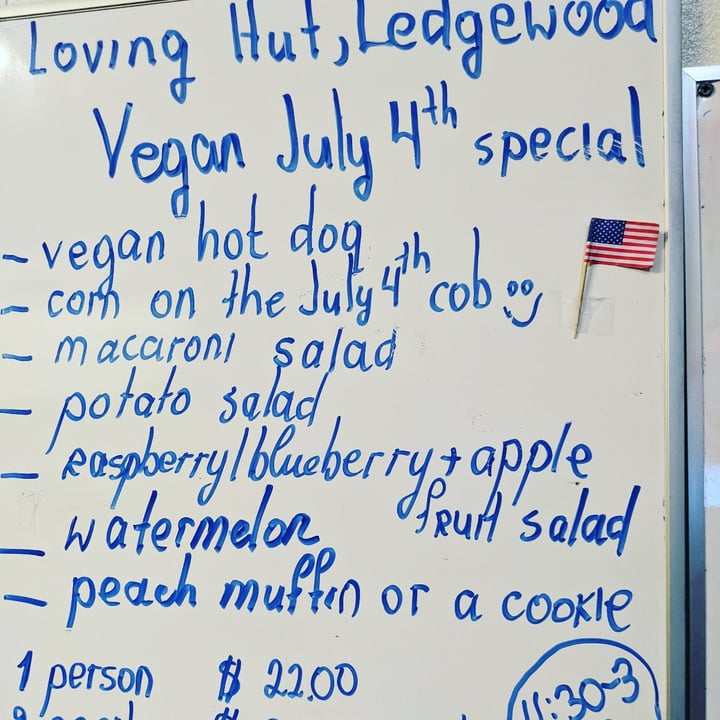 Loving Hut, Ledgewood
Vegan July 4th special
- vegan hot dog
- corn on the July 4th cob
- macaroni salad
- potato salad
- raspberry/blueberry + apple
fruit salad
- watermelon
- peach muffin or a cookie
1 person $ 22.00
11:30-3